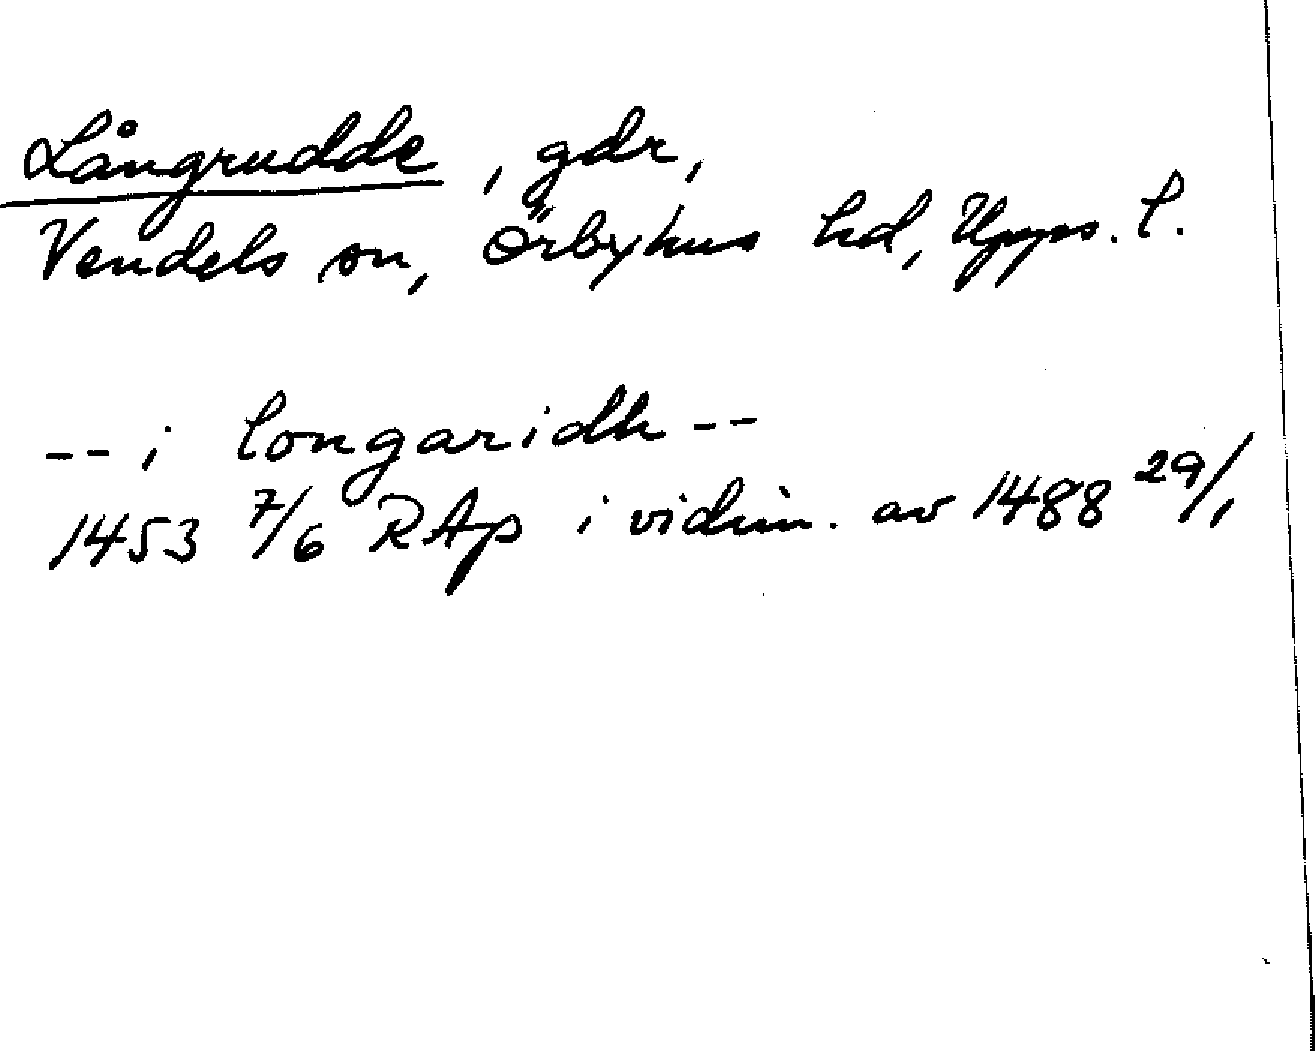 Långrudde, gdr,
Vendels sn, Örbyhus hd, Upps. l.
-- i longaridh --
1453 7/6 RAp i vidim. av 1488 29/1